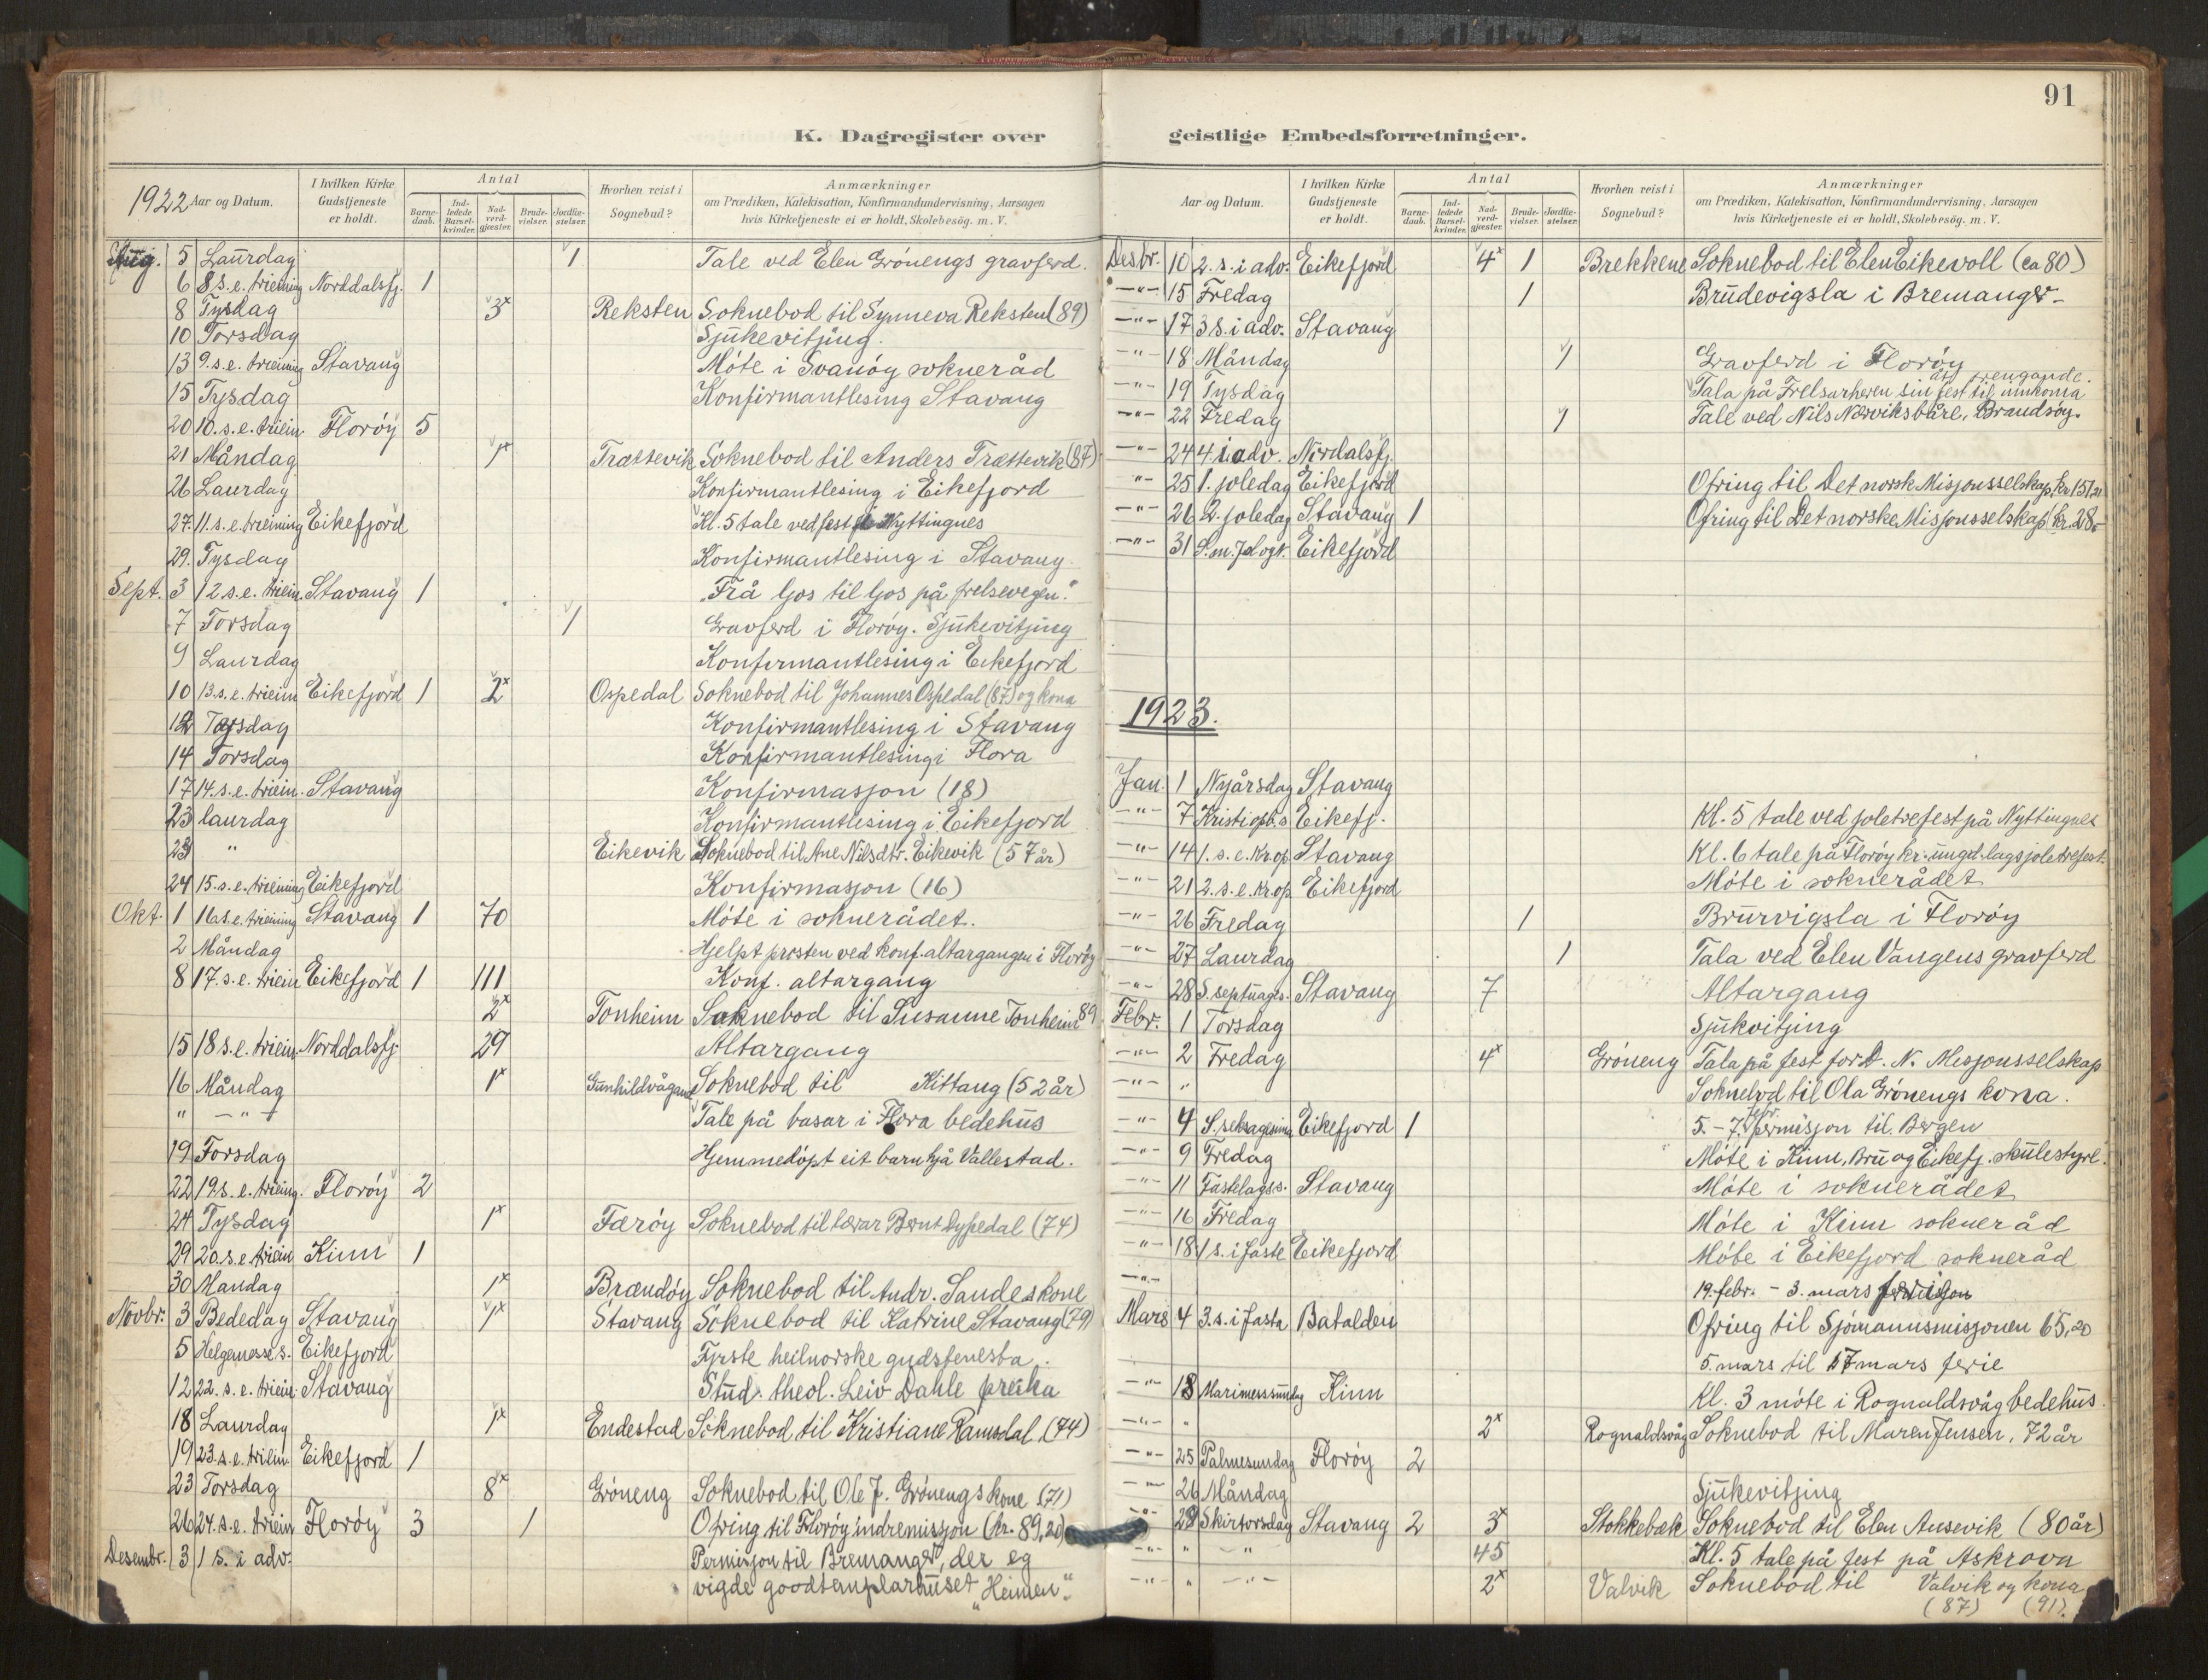 91
K. Dagregister over geistlige Embedsforretninger.
1922 Aar og Datum.
I hvilken Kirke Gudstjeneste er holdt.
Antal
Barne-daab.
Ind-ledede Barsel-kvinder.
Nad-verd-gjæster.
Brude-vielser.
Jordfæ-stelser.
Hvorhen reist i Sognebud?
Anmærkninger
om Prædiken, Katekisation, Konfirmandundervisning, Aarsagen
hvis Kirketjeneste ei er holdt, Skolebesög. m. V.
Aug. 5 Laurdag 1 Tale ved Elen Grönengs gravferd.
6 8 s.e. treeining Norddalsfj. 1
8 Tysdag 3x Reksten Soknebod til Synneva Reksten (89)
10 Torsdag Sjukevitjing.
13 9. s.e. treeining Stavang Móte i Svanöy sokneråd
15 Tysdag Konfirmantlesing Stavang
20 10. s.e. triein. Floröy 5
21 Måndag 1x Trættevik Soknebod til Anders Trættevik (87)
26 Laurdag Konfirmantlesing i Eikefjord
27. 11. s.e. treeining Eikefjord Kl. 5 tale ved fest på Nyttingnes
29. Tysdag Konfirmantlesing i Stavang
Sept. 3 12 s.e. triein. Stavang 1 "Frå ljos til ljos på frelsevegen."
7 Torsdag 1 Gravferd i Floröy. Sjukevitjing
9 Laurdag Konfirmantlesing i Eikefjord
10 13. s.e. triein Eikefjord 1 2x Ospedal Soknebod til Johannes Ospedal (87) og kona
12 Tysdag Konfirmantlesing i Stavang
14 Torsdag Konfirmantlesing i Flora
17 14. s.e. triein. Stavang Konfirmasjon (18)
23 laurdag Konfirmantlesing i Eikefjord
23 " Eikevik Soknebod til Ane Nilsdtr. Eikevik (57 år)
24 15. s.e. trieining Eikefjord Konfirmasjon (16)
Okt. 1 16 s.e. trieining Stavang 1 70 Móte i soknerådet.
2 Måndag Hjelpt prosten ved konf. altargangen i Floröy
8 17. s.e. triein Eikefjord 1 111 Konf. altargang
2x Tonheim Soknebod til Susanne Tonheim 89
15 18 s.e. triein. Norddalsfj. 29 Altargang
16 Måndag 1x Gunhildvågane Soknebod til Kittang (52 år)
" - " - Tale på basar i Flora bedehus
19 Torsdag Hjemmedöpt eit barn hjå Vallestad.
22 19 s.e. trieing. Floröy 2
24 Tysdag 1x Færöy Soknebod til lærar Bernt Dypedal (74)
29 20. s.e. triein Kinn 1
30 Mandag 1x Brandöy Soknebod til Andr. Sandes kone
Novbr. 3 Bededag Stavang 1x Stavang Soknebod til Katrine Stavang (79)
5 Helgemesse s. Eikefjord Fyrste heilnorske gudstenesta.
12 22. s.e. triein. Stavang Stud. theol. Leiv Dahle preika
18 Laurdag 1x Endestad Soknebod til Kristiane Ramsdal (74)
19 23. s.e. triein. Eikefjord 1
23 Torsdag 8x Gröneng Soknebod til Ole J. Grönengs kone (71)
26 24. s.e. triein Floröy 3 1 Ofring til Floröy indremisjon (kr. 89,20)
Desembr. 3 1 s. i adv. Permisjon til Bremanger, der eg
vigde goodtemplarhuset "Heimen".
Aar og Datum.
I hvilken Kirke Gudstjeneste er holdt.
Antal
Barne-daab.
Ind-ledede Barsel-kvinder.
Nad-verd-gjæster.
Brude-vielser.
Jordfæ-stelser.
Hvorhen reist i Sognebud?
Anmærkninger
om Prædiken, Katekisation, Konfirmandundervisning, Aarsagen
hvis Kirketjeneste ei er holdt, Skolebesög. m. V.
Desbr. 10 2. s. i adv. Eikefjord 4x 1 Brekkene Soknebod til Elen Eikevoll (ca 80)
-"- 15 Fredag 1 Brudevigsla i Bremanger
-"- 17 3 s. i adv. Stavang
-"- 18 Måndag 1 Gravferd i Floröy
-"- 19 Tysdag Tala på Frelsarheren sin fest til innkoma åt trengande.
-"- 22 Fredag 1 Tale ved Nils Nærviks båre, Brandsöy.
-"- 24 4. i adv. Nordalsfj.
"- 25 1. joledag Eikefjord Ofring til Det norsk Misjonsselskap kr 151,21
-"- 26 2. joledag Stavang 1 Ofring til Det norske Misjonsselskap kr. 28,-
-"- 31 S. m. Jol og N. Eikefjord
1923.
Jan. 1 Nyårsdag Stavang
-"- 7 Kristi opb. s Eikefj. Kl. 5 tale ved joletrefest på Nyttingnes
-"- 14 1. s.e. Kr. op. Stavang Kl. 6 tale på Floröy kr. ungd. lags joletrefest.
-"- 21 2. s.e. kr. op Eikefjord Móte i soknerådet
-"- 26 Fredag 1 Brurvigsla i Floröy
-"- 27 Laurdag 1 Tala ved Elen Vangens gravferd
-"- 28 S. septuages. Stavang 7 Altargang
Febr. 1 Torsdag Sjukvitjing
-"- 2 Fredag 4x Gröneng Tala på fest for D. N. Misjonsselskap
-"- " Soknebod til Ola Grönengs kona.
-"- 4 S. seksagesima Eikefjord 1 5.-7. febr. permisjon til Bergen
-"- 9 Fredag Móte i Kinn, Bru og Eikefj. skulestyre.
-"- 11 Fastelags s. Stavang Móte i soknerådet
-"- 16 Fredag Móte i Kinn sokneråd
-"- 18 1 s. i faste Eikefjord Móte i Eikefjord sokneråd
-"- 19. febr. - 3. mars
Mars 4 3. s. i fasta Batalden Ofring til Sjömannsmisjonen 65,20
5. mars til 17 mars ferie
-"- 18 Marimess sundag Kinn Kl. 3 móte i Rognaldsvåg bedehus.
-"- " 2x Rognaldsvåg Soknebod til Maren Jensen, 72 år
-"- 25 Palmesundag Floröy 2
-"- 26 Måndag Sjukevitjing
-"- 28 Skirtorsdag Stavang 2 3x Stokkebæk Soknebod til Elen Ausevik (80 år)
-"- " -"- 45 Kl. 5 tale på fest på Askrova
-"- " -"- 2x Valvik Soknebod til Valvik og kona
(87) (91).